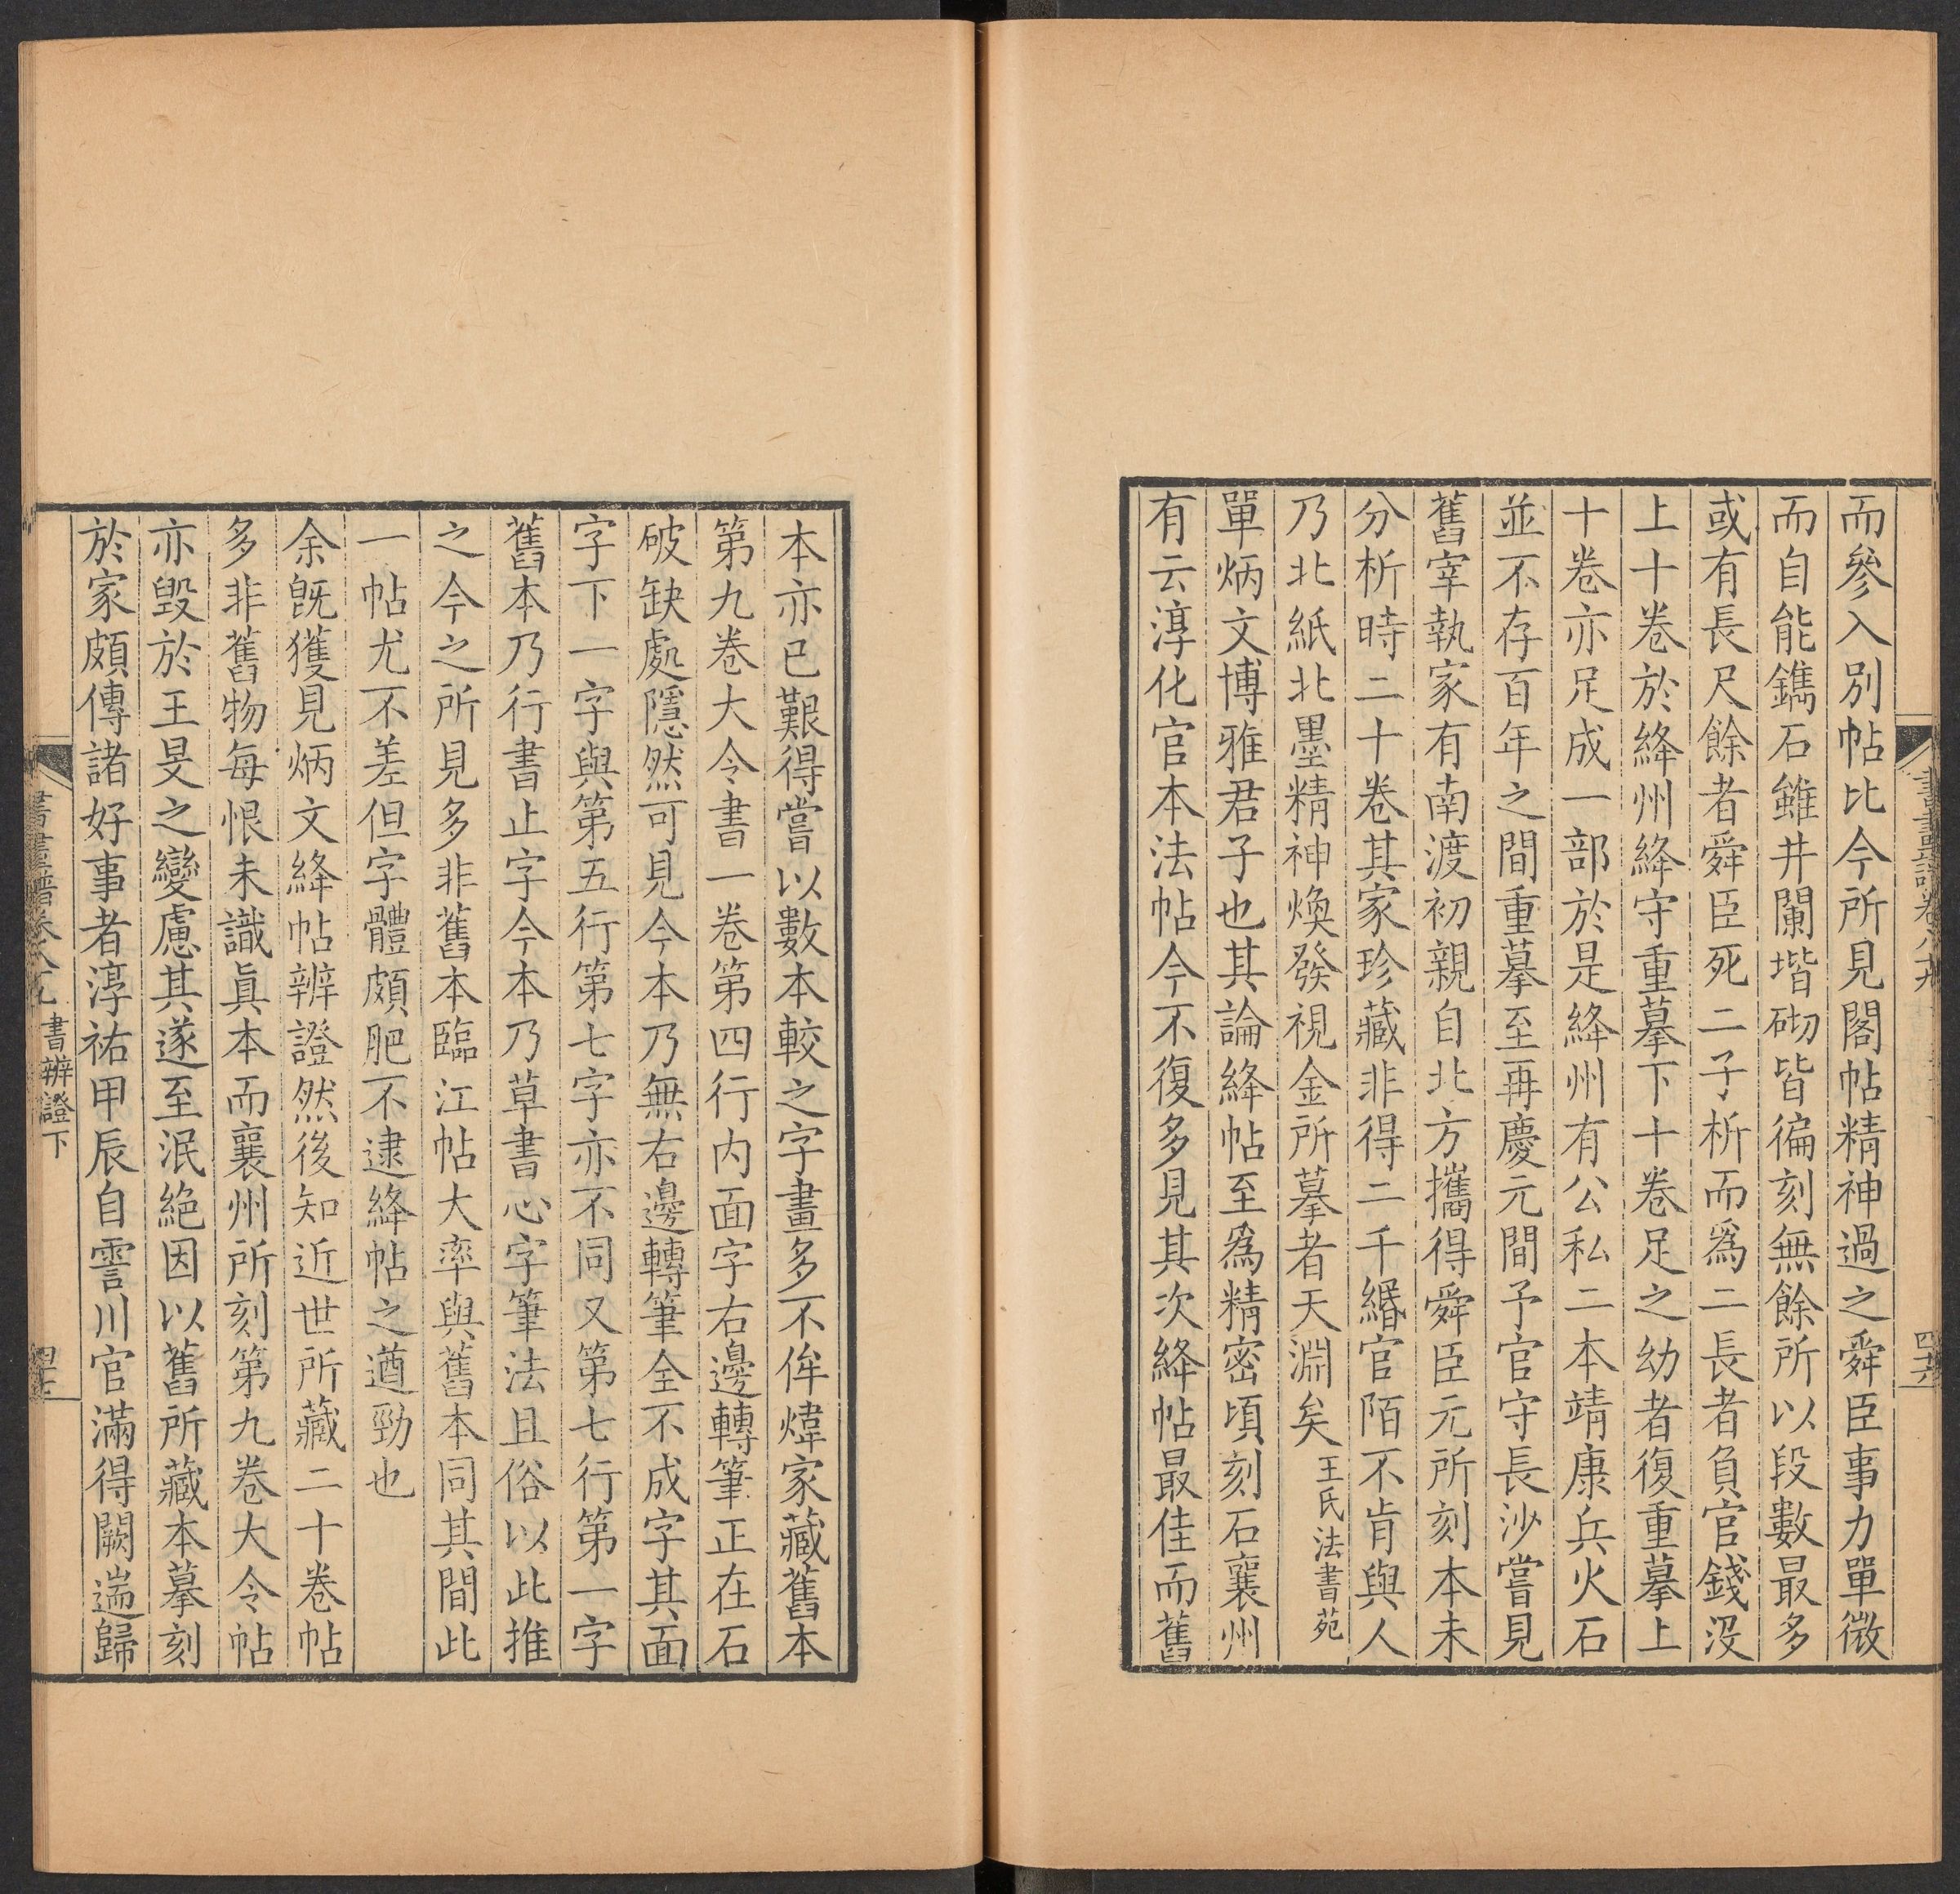 而參入別帖比今所見閣帖精神過之舜臣事力單微
而自能鐫石雖井闌堦砌皆徧刻無餘所以段數最多
或有長尺餘者舜臣死二子析而爲二長者負官錢沒
上十卷於絳州絳守重摹下十卷足之幼者復重摹上
十卷亦足成一部於是絳州有公私二本靖康兵火石
並不存百年之間重摹至再慶元間予官守長沙嘗見
舊宰執家有南渡初親自北方攜得舜臣元所刻本未
分析時二十卷其家珍藏非得二千緡官陌不肯與人
乃北紙北墨精神煥發視金所摹者天淵矣王氏法書苑
單炳文博雅君子也其論絳帖至爲精密頃刻石襄州
有云淳化官本法帖今不復多見其次絳帖最佳而舊
本亦已艱得嘗以數本較之字畫多不侔煒家藏舊本
第九卷大令書一卷第四行内面字右邊轉筆正在石
破缺處隱然可見今本乃無右邊轉筆全不成字其面
字下一字與第五行第七字亦不同又第七行第一字
舊本乃行書止字今本乃草書心字筆法且俗以此推
之今之所見多非舊本臨江帖大率與舊本同其間此
一帖尤不差但字體頗肥不逮絳帖之遒勁也
余旣獲見炳文絳帖辨證然後知近世所藏二十卷帖
多非舊物每恨未識眞本而襄州所刻第九卷大令帖
亦毀於王旻之變慮其遂至泯絕因以舊所藏本摹刻
於家頗傳諸好事者淳祐甲辰自霅川官滿得闕遄歸
書畫譜卷八十九
書辨證下